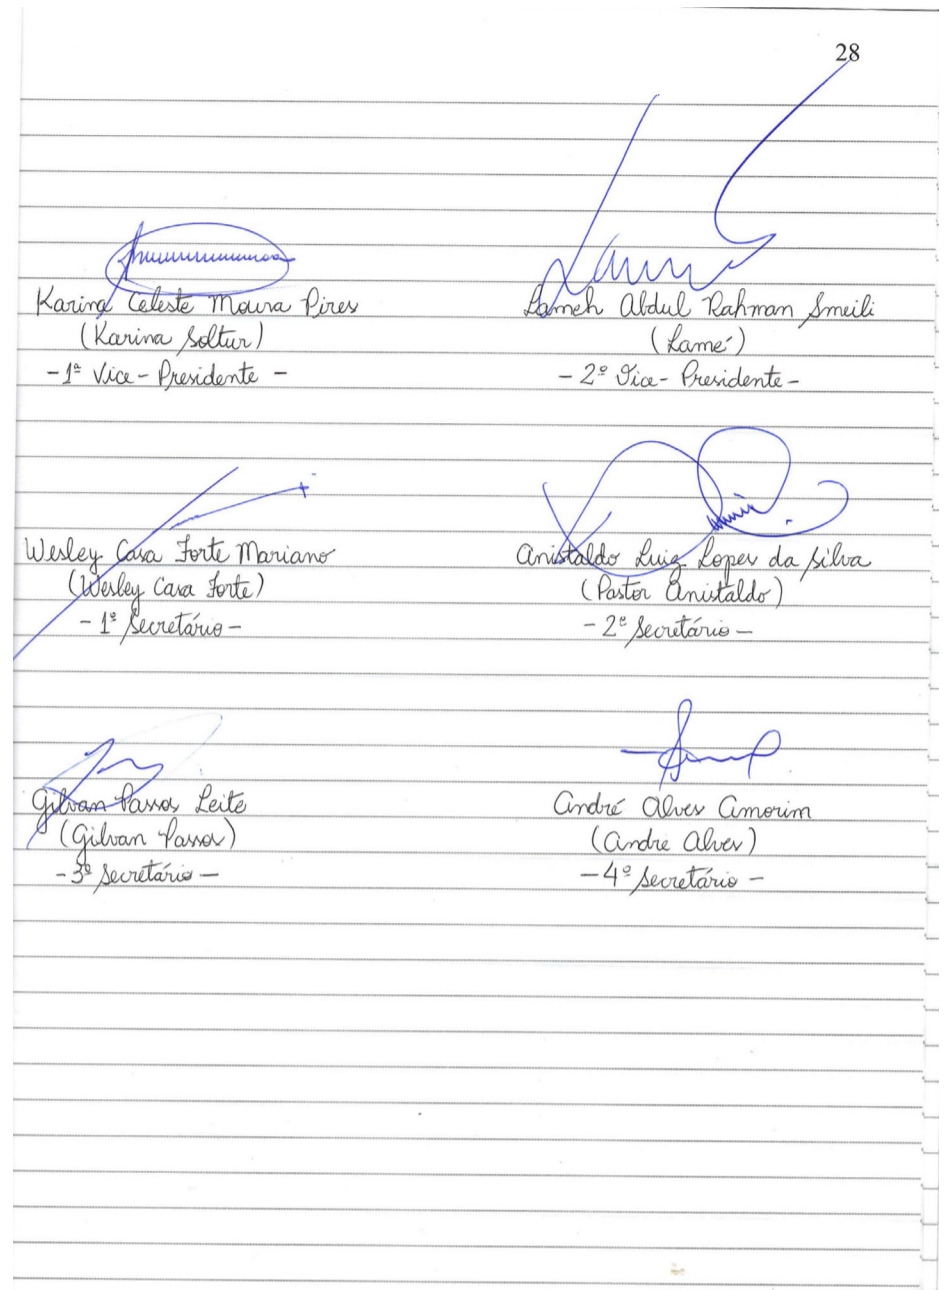 28
Karina Celeste Moura Pires
(Karina Soltur)
-1ª Vice-Presidente -
Lameh Abdul Rahman Smeili
(Lamé)
- 2º Vice-Presidente -
Wesley Casa Forte Mariano
(Wesley Casa Forte)
- 1º Secretário -
Anistaldo Luiz Lopes da Silva
(Pastor Anistaldo)
- 2º Secretário -
Gilvan Passos Leite
(Gilvan Passos)
-3º Secretário -
André Alves Amorim
(Andre Alves)
-4º Secretário -